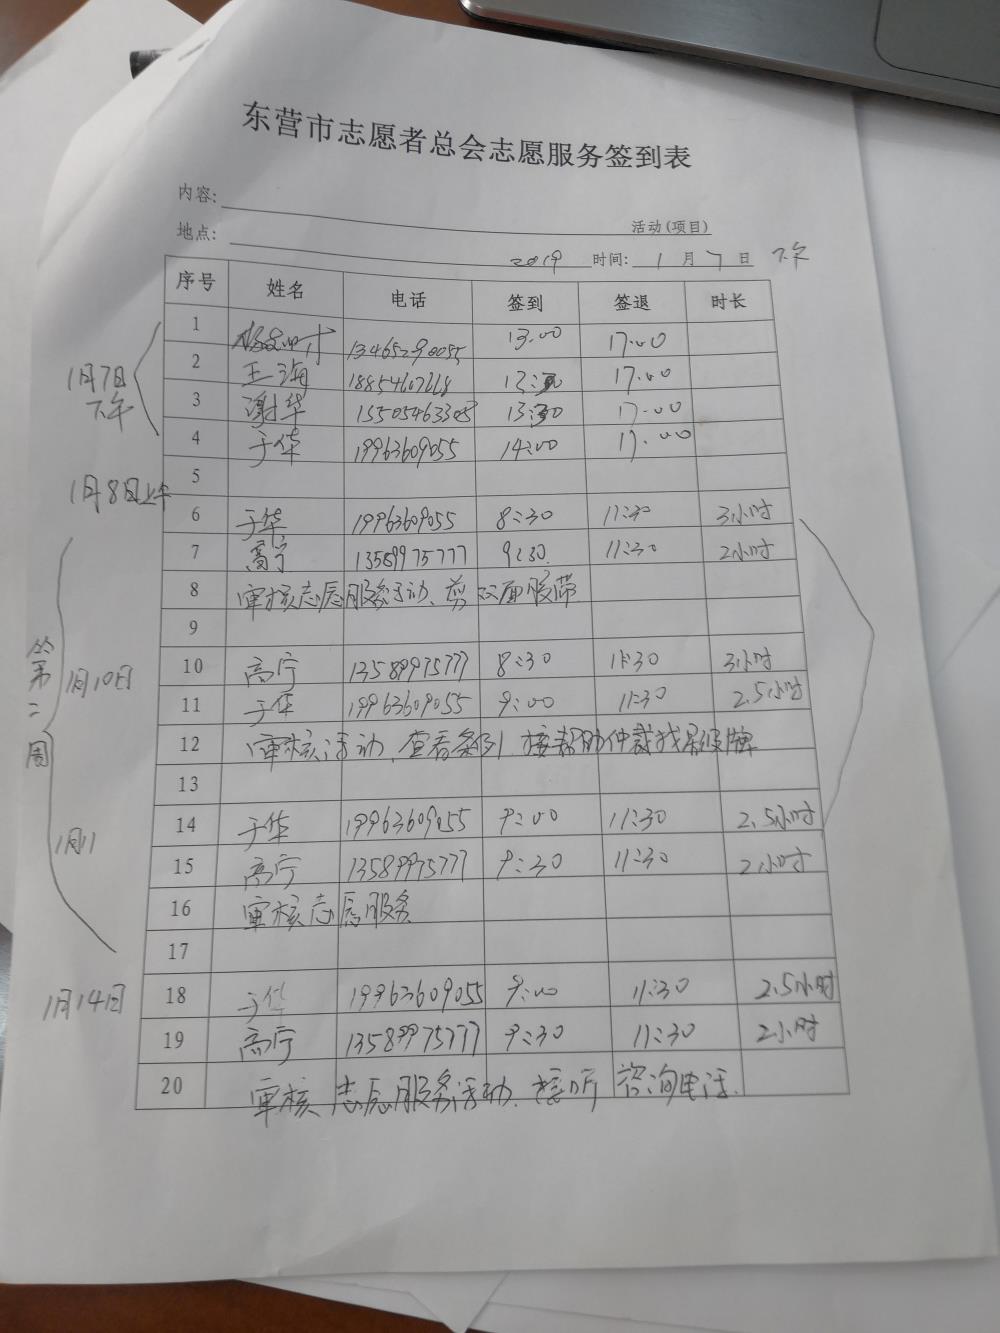 东营市志愿者总会志愿服务签到表
内容: 活动(项目)
地点: 2019 时间: 1 月 7 日 下午
序号 姓名 电话 签到 签退 时长
1 13465290055 13.00 17.00
2 王海 17.00
3 谢华 15505463305 17.00
4 于华 19963609055 14:00 17.00
1月7日
下午
5
1月8日上午
6 于华 19963609055 8:30 11:30 3小时
7 高宁 13589975777 9:30 11:30 2小时
8 审核志愿服务活动、剪双面胶带
9
第二周
10 高宁 13589975777 8:30 11:30 3小时
1月10日
11 于华 19963609055 9:00 11:30 2.5小时
12 审核活动、查看条例、接帮助仲裁找
13
14 于华 19963609055 9:00 11:30 2.5小时
1月11
15 高宁 13589975777 9:30 11:30 2小时
16 审核志愿服务
17
1月14日
18 于华 19963609055 9:00 11:30 2.5小时
19 高宁 13589975777 9:30 11:30 2小时
20 审核志愿服务活动、接听咨询电话.